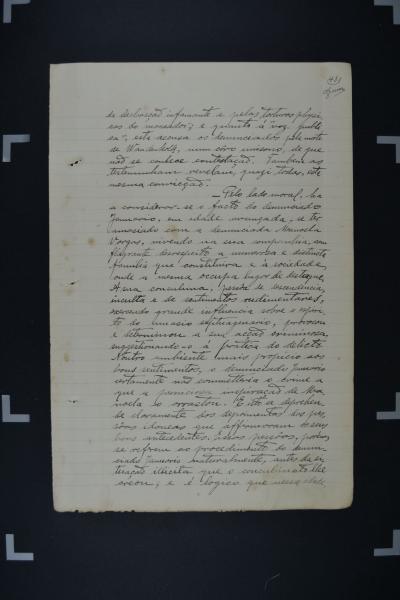 de desforço infamante e pelas torturas physi-
cas do
e quanto à voz publi-
ca, esta accusa os denunciados pela morte
de Wanderholtz, num côro unisono, de que
não se conhece contestação. Tambem as
testemunhas revelam, quasi todas, esta
mesma convicção.
— Pelo lado moral, ha
a considerar-se o facto do denunciado
Januario, em idade avançada, se ter
amasiado com a denunciada Manoela
Vargas, vivendo na sua companhia, em
flagrante desrespeito a numerosa e distincta
familia que constituira e à sociedade,
onde a mesma occupa lugar de destaque.
A sua concubina, pessôa de
inculta e de sentimentos rudimentares,
exercendo grande influencia sobre o espiri-
to do amasio septuagenario, provocou
e determinou a sua acção criminosa,
suggestionando-o à pratica do delicto.
Noutro ambiente mais propicio aos
bons sentimentos, o denunciado Januario
certamente não commetteria o crime a
que a perniciosa inspiração de Ma-
noela o arrastou. E isto se deprehen-
de claramente dos depoimentos das pes-
sôas idoneas que affirmaram os seus
bons antecedentes. Essas pessôas, porém,
se referem ao procedimento do denun-
ciado Januario naturalmente, antes da si-
tuação illicita que o concubinato lhe
creou; e é logico que nessa